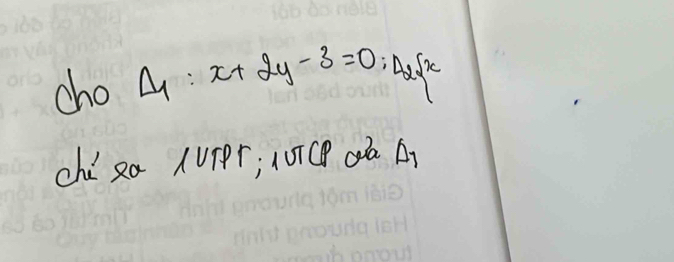 Cho Δ₁ : x + 2y - 3 = 0 ; Δ₂ { x
chỉ ra 1 VTPT ; 1 VTCP của Δ₁